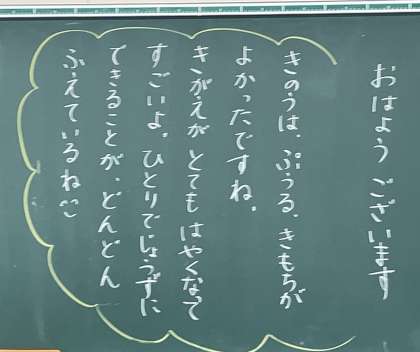 おはよう ございます
きのうは、ぷうる。きもちが
よかったですね。
きがえが とても はやくなって
すごいよ。ひとりでじょうずに
できることが、どんどん
ふえているね